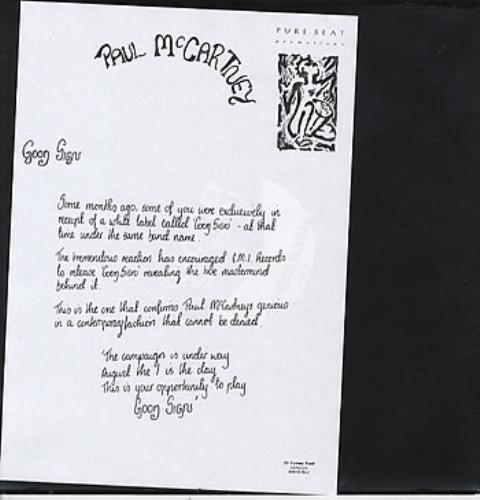 PAUL McCARTNEY
PURE BEAT
promotions
Good Sign
Some months ago, some of you were exclusively in
receipt of a white label called 'Good Sign' - at that
time under the same band name.
The tremendous reaction has encouraged E.M.I. Records
to release 'Good Sign' revealing the true mastermind
behind it.
This is the one that confirms, Paul McCartney's genious
in a contemporary fashion that cannot be denied
'The campaign is under way
August the 7 is the day
This is your opportunity to play
Good Sign'